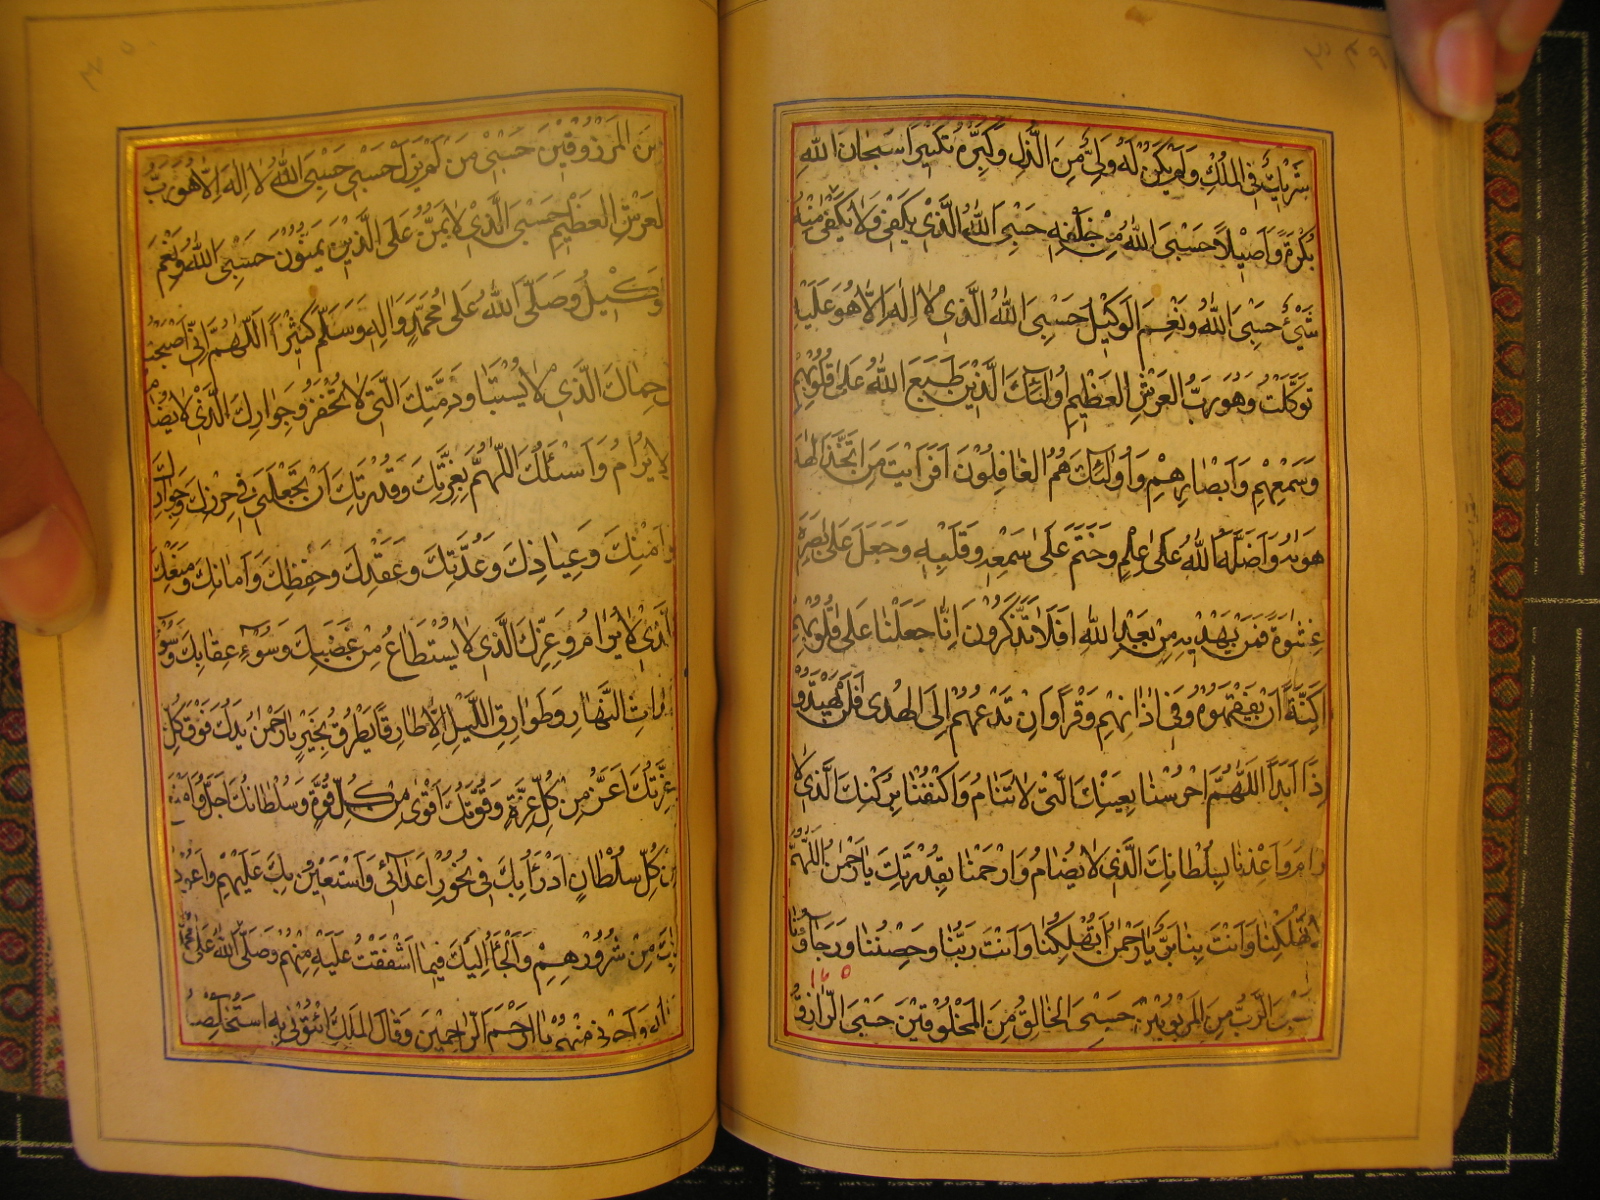 شَرِيكٌ فِي الْمُلْكِ وَلَمْ يَكُنْ لَهُ وَلِيٌّ مِنَ الذُّلِّ وَكَبِّرْهُ تَكْبِيرًا سُبْحَانَ اللهِ
بُكْرَةً وَأَصِيلًا حَسْبِيَ اللهُ مِنْ خَلْقِهِ حَسْبِيَ اللهُ الَّذِي يَكْفِي وَلَا يَكْفِي مِنْهُ
شَيْءٌ حَسْبِيَ اللهُ وَنِعْمَ الْوَكِيلُ حَسْبِيَ اللهُ الَّذِي لَا إِلٰهَ إِلَّا هُوَ عَلَيْهِ
تَوَكَّلْتُ وَهُوَ رَبُّ الْعَرْشِ الْعَظِيمِ أُولٰئِكَ الَّذِينَ طَبَعَ اللهُ عَلَى قُلُوبِهِمْ
وَسَمْعِهِمْ وَأَبْصَارِهِمْ وَأُولٰئِكَ هُمُ الْغَافِلُونَ أَفَرَأَيْتَ مَنِ اتَّخَذَ إِلٰهَهُ
هَوَاهُ وَأَضَلَّهُ اللهُ عَلَى عِلْمٍ وَخَتَمَ عَلَى سَمْعِهِ وَقَلْبِهِ وَجَعَلَ عَلَى بَصَرِهِ
غِشَاوَةً فَمَنْ يَهْدِيهِ مِنْ بَعْدِ اللهِ أَفَلَا تَذَكَّرُونَ إِنَّا جَعَلْنَا عَلَى قُلُوبِهِمْ
أَكِنَّةً أَنْ يَفْقَهُوهُ وَفِي آذَانِهِمْ وَقْرًا وَإِنْ تَدْعُهُمْ إِلَى الْهُدَى فَلَنْ يَهْتَدُوا
إِذًا أَبَدًا اللّٰهُمَّ احْرُسْنَا بِعَيْنِكَ الَّتِي لَا تَنَامُ وَاكْنُفْنَا بِرُكْنِكَ الَّذِي لَا
يُرَامُ وَأَعِذْنَا بِسُلْطَانِكَ الَّذِي لَا يُضَامُ وَارْحَمْنَا بِقُدْرَتِكَ يَا رَحْمٰنُ اللّٰهُمَّ
لَا تُهْلِكْنَا وَأَنْتَ بِنَا بَرٌّ يَا رَحْمٰنُ أَتُهْلِكُنَا وَأَنْتَ رَبُّنَا وَحِصْنُنَا وَرَجَاؤُنَا
١٦٥
حَسْبِيَ الرَّبُّ مِنَ الْمَرْبُوبِينَ حَسْبِيَ الْخَالِقُ مِنَ الْمَخْلُوقِينَ حَسْبِيَ الرَّازِقُ
مِنَ الْمَرْزُوقِينَ حَسْبِي مَنْ لَمْ يَزَلْ حَسْبِي حَسْبِيَ اللهُ لَا إِلٰهَ إِلَّا هُوَ رَبُّ
الْعَرْشِ الْعَظِيمِ حَسْبِيَ الَّذِي لَا يَمُنُّ عَلَى الَّذِينَ يَمُنُّونَ حَسْبِيَ اللهُ وَنِعْمَ
الْوَكِيلُ وَصَلَّى اللهُ عَلَى مُحَمَّدٍ وَآلِهِ وَسَلَّمَ كَثِيرًا اللّٰهُمَّ إِنِّي أَصْبَحْتُ
فِي حِمَاكَ الَّذِي لَا يُسْتَبَاحُ وَذِمَّتِكَ الَّتِي لَا تُخْفَرُ وَجِوَارِكَ الَّذِي لَا يُضَامُ
لَا يُرَامُ وَأَسْئَلُكَ اللّٰهُمَّ بِعِزَّتِكَ وَقُدْرَتِكَ أَنْ تَجْعَلَنِي فِي حِرْزِكَ وَجِوَارِكَ
وَأَمْنِكَ وَعِيَاذِكَ وَعُدَّتِكَ وَعَقْدِكَ وَحِفْظِكَ وَأَمَانِكَ وَمَنْعِكَ
الَّذِي لَا يُرَامُ وَعِزِّكَ الَّذِي لَا يُسْتَطَاعُ مِنْ غَضَبِكَ وَسُوءِ عِقَابِكَ وَسُوءِ
النَّهَارِ وَطَوَارِقِ اللَّيْلِ إِلَّا طَارِقًا يَطْرُقُ بِخَيْرٍ يَا رَحْمٰنُ يَدُكَ فَوْقَ كُلِّ
عِزَّتُكَ أَعَزُّ مِنْ كُلِّ عِزَّةٍ وَقُوَّتُكَ أَقْوَى مِنْ كُلِّ قُوَّةٍ وَسُلْطَانُكَ أَجَلُّ وَأَمْنَعُ
مِنْ كُلِّ سُلْطَانٍ أَدْرَأُ بِكَ فِي نُحُورِ أَعْدَائِي وَأَسْتَعِينُ بِكَ عَلَيْهِمْ وَأَعُوذُ
بِكَ مِنْ شُرُورِهِمْ وَأَلْجَأُ إِلَيْكَ فِيمَا أَشْفَقْتُ عَلَيْهِ مِنْهُمْ وَصَلَّى اللهُ عَلَى مُحَمَّدٍ
وَآلِهِ وَأَجِرْنِي مِنْهُمْ يَا أَرْحَمَ الرَّاحِمِينَ وَقَالَ الْمَلِكُ ائْتُونِي بِهِ أَسْتَخْلِصْهُ